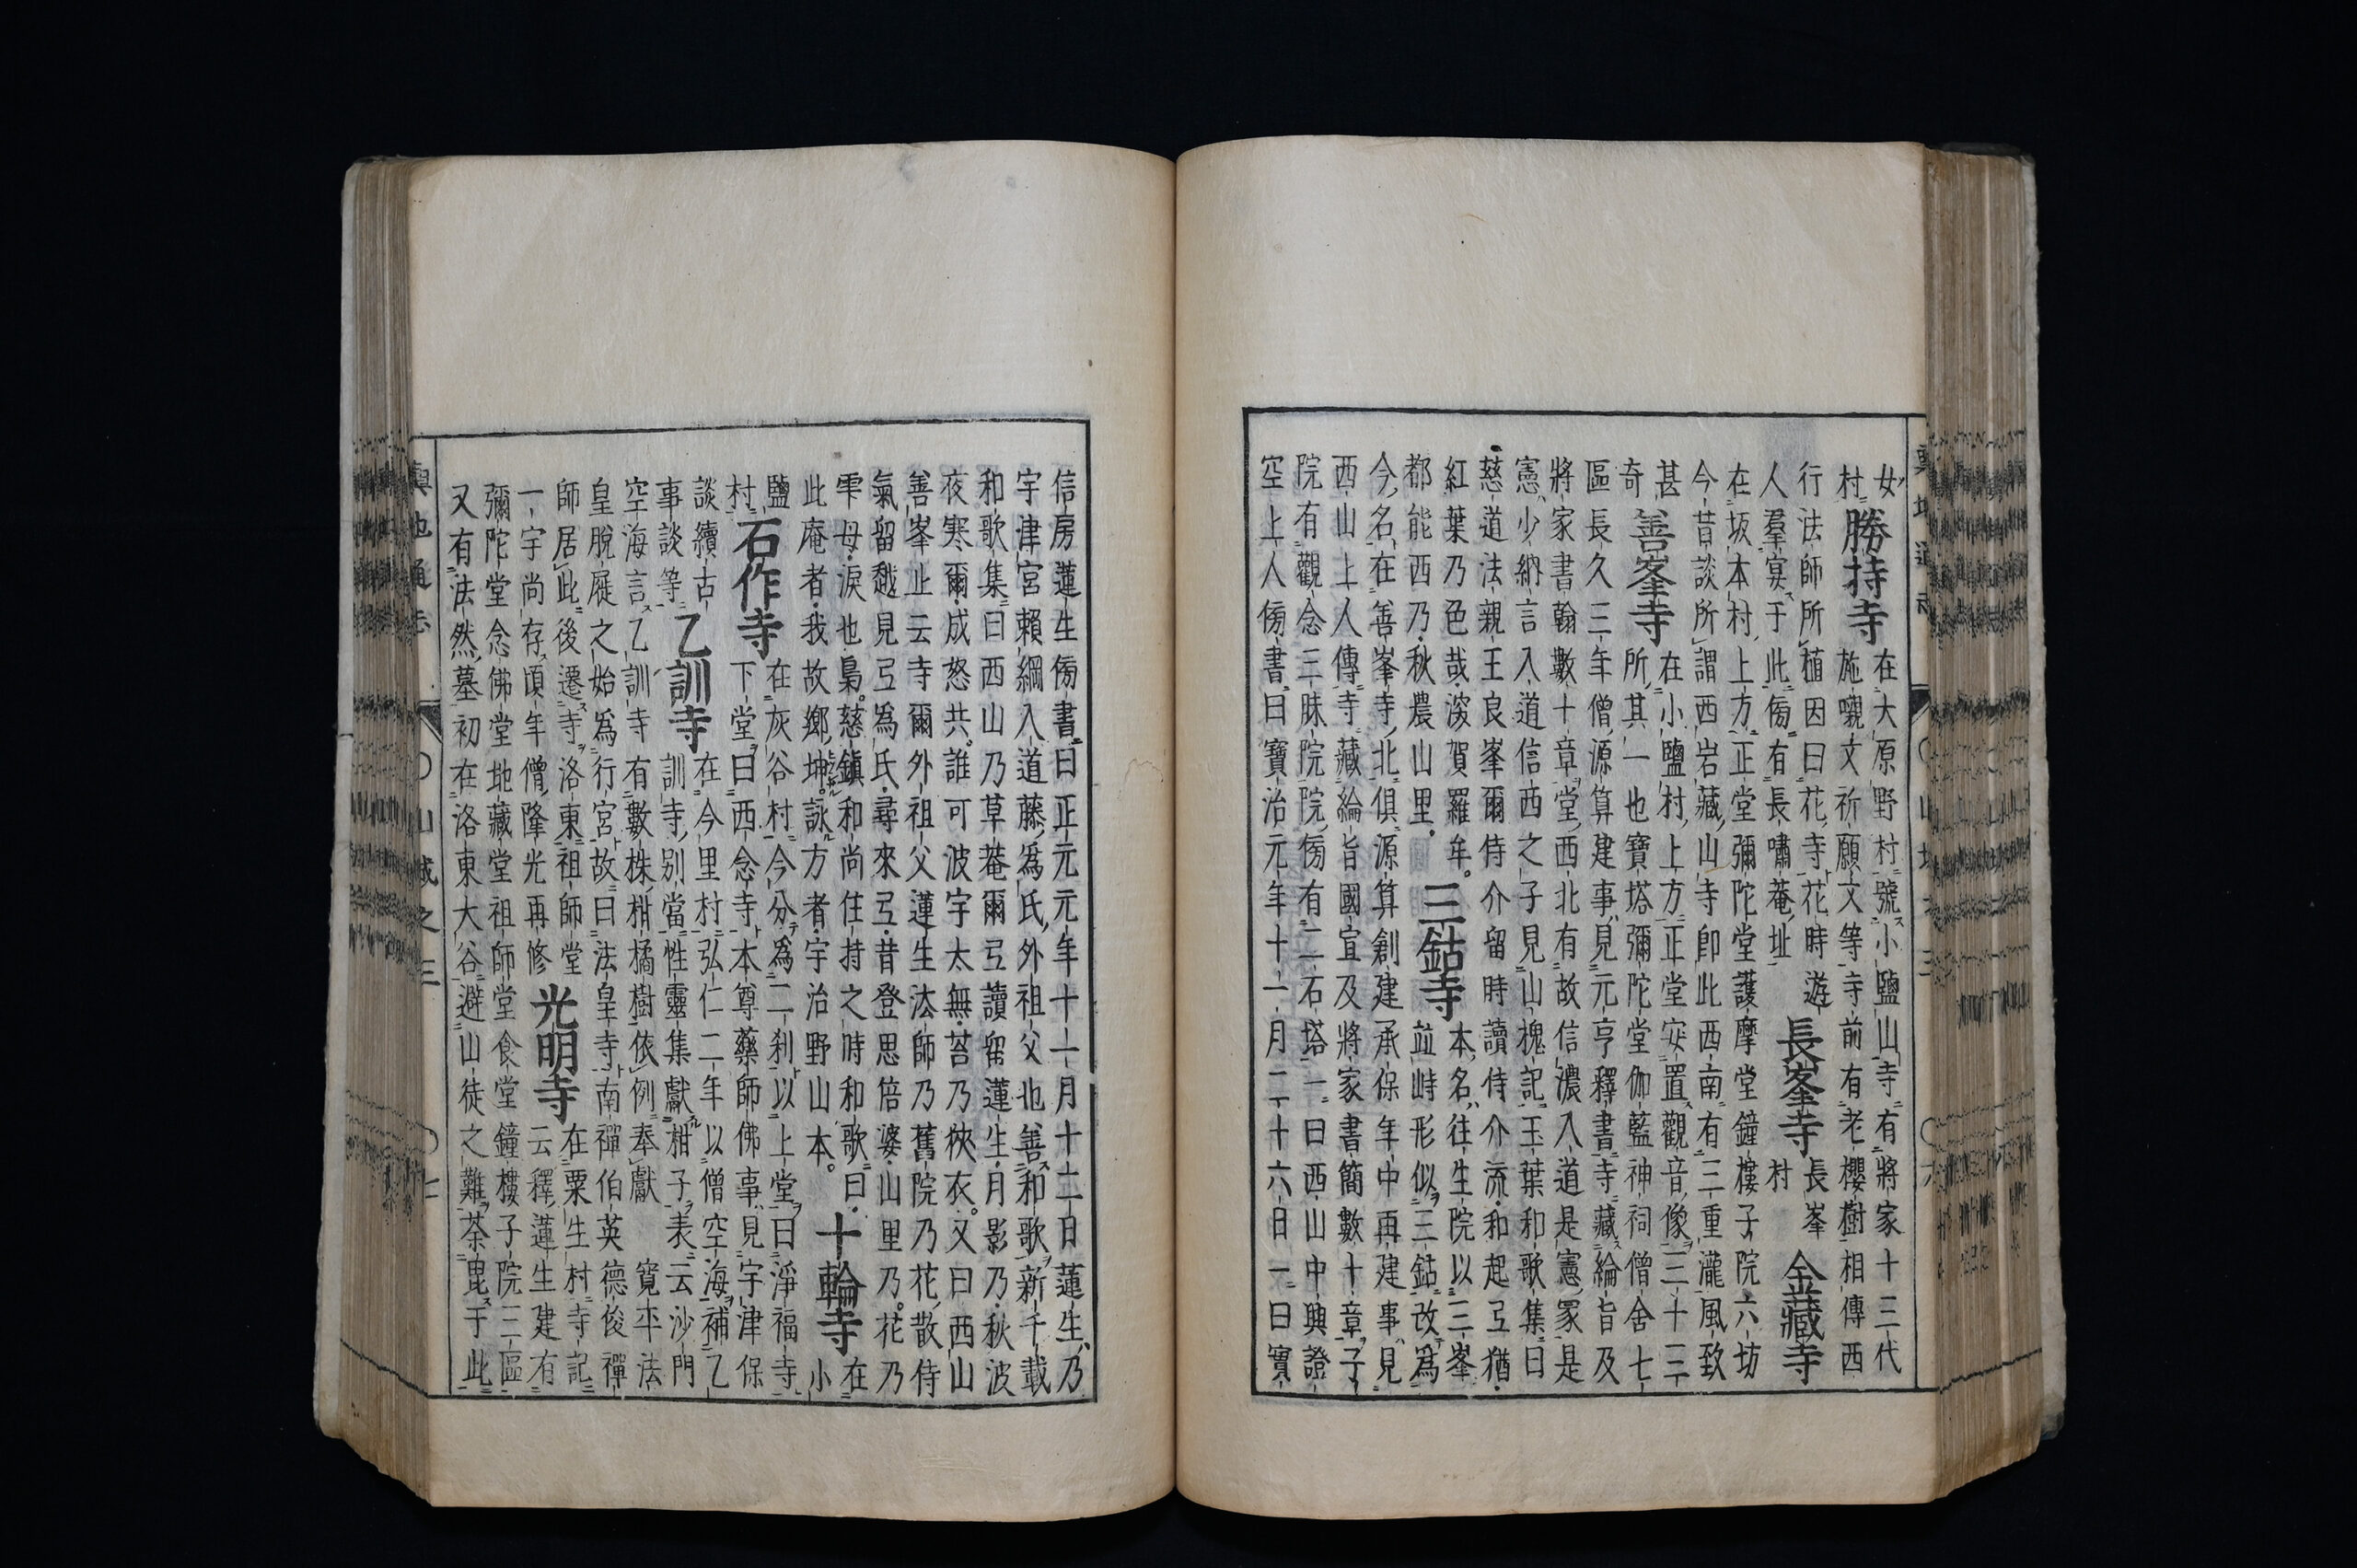 女
村
勝持寺
在大原野村號小鹽山寺有將家十三代
施嚫文祈願文等寺前有老櫻樹相傳西
行法師所植因曰花寺花時遊
人羣宴于此傍有長嘯菴址
長峯寺
長峯
村
金藏寺
在坂本村上方正堂彌陀堂護摩堂鐘樓子院六坊
今昔談所謂西岩藏山寺卽此西南有三重瀧風致
甚
奇
善峯寺
在小鹽村上方正堂安置觀音像三十三
所其一也寶塔彌陀堂伽藍神祠僧舍七
區長久三年僧源算建事見元亨釋書寺藏綸旨及
將家書翰數十章堂西北有故信濃入道是憲冢是
憲少納言入道信西之子見山槐記玉葉和歌集曰
慈道法親王良峯爾侍介留時讀侍介流和起弖猶
紅葉乃色哉深賀羅牟
都能西乃秋農山里
三鈷寺
本名往生院以三峯
竝峙形似三鈷改爲
今名在善峯寺北俱源算創建承保年中再建事見
西山上人傳寺藏綸旨國宣及將家書簡數十章子
院有觀念三昧院院傍有二石塔一曰西山中興證
空上人傍書曰寶治元年十一月二十六日一曰實
信房蓮生傍書曰正元元年十一月十二日蓮生乃
宇津宮賴綱入道藤爲氏外祖父也善和歌新千載
和歌集曰西山乃草菴爾弖讀留蓮生月影乃秋波
夜寒爾成怒共誰可波宇太無苔乃狹衣又曰西山
善峯止云寺爾外祖父蓮生法師乃舊院乃花散侍
氣留越見弖爲氏尋來弖昔登思倍婆山里乃花乃
雫母淚也梟慈鎭和尚住持之時和歌曰
此庵者我故鄉坤詠方者宇治野山本
十輪寺
在
小
鹽
村
石作寺
在灰谷村今分爲二刹以上堂曰淨福寺
下堂曰西念寺本尊藥師佛事見宇津保
談續古
事談等
乙訓寺
在今里村弘仁二年以僧空海補乙
訓寺別當性靈集獻柑子表云沙門
空海言乙訓寺有數株柑橘樹依例奉獻
寬平法
皇脫屣之始爲行宮故曰法皇寺南禪伯英德俊禪
師居此後遷寺洛東祖師堂
一宇尚存頃年僧隆光再修
光明寺
在粟生村寺記
云釋蓮生建有
彌陀堂念佛堂地藏堂祖師堂食堂鐘樓子院三區
又有法然墓初在洛東大谷避山徒之難荼毘于此